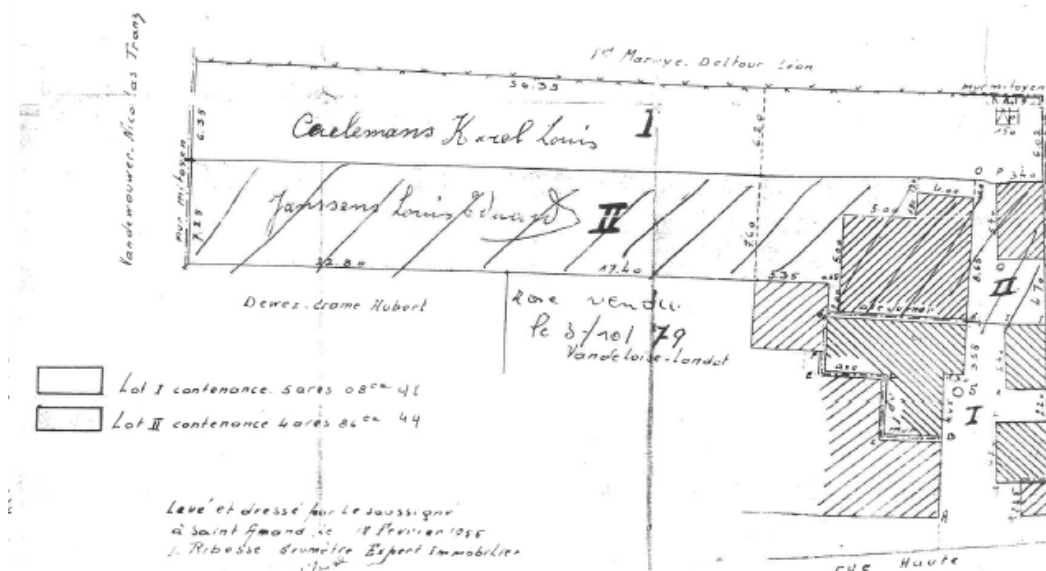 Vandewouwer. Nicolas Franz
Maruye. Deltour Léon
56.35
mur mitoyen
6.35
Caelemans Karel Louis
I
6.20
150
6.05
O
P
3.40
mur mitoyen
7.25
Janssens Louis Eduard
II
4.00
5.00
7.60
6.00
8.65
II
4.70
22.80
17.40
5.35
Dewez. Crame Hubert
Zone vendu
le 3/10/79
Vandeloise-Landot
axe
3.55
F
E
I
2.20
Lot I contenance. 5 ares 08 ca 41
Lot II contenance 4 ares 86 ca 44
B
A
Levé et dressé par le soussigné
à Saint Amand, le 18 Février 1955
J. Ribesse Géomètre Expert Immobilier
rue Haute